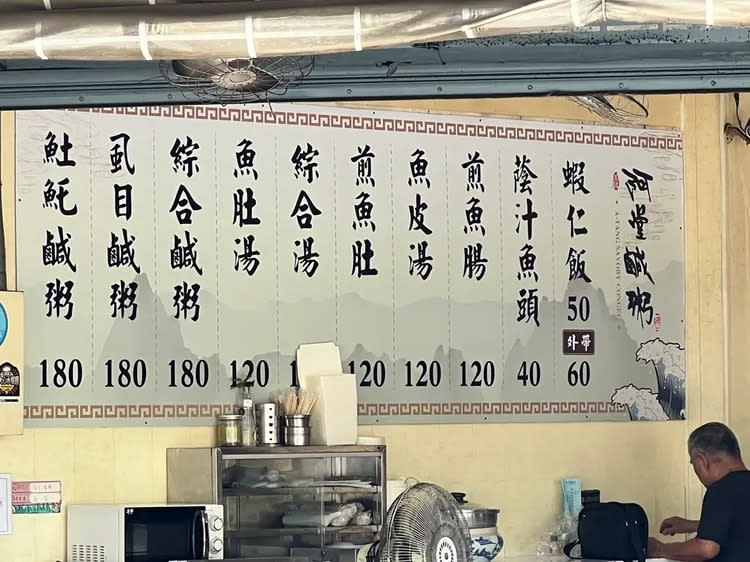 阿堂鹹粥
A-TANG SAVORY CONGEE
蝦仁飯 50
外帶
60
蔭汁魚頭 40
煎魚腸 120
魚皮湯 120
煎魚肚 120
綜合湯
魚肚湯 120
綜合鹹粥 180
虱目鹹粥 180
𩵚魠鹹粥 180